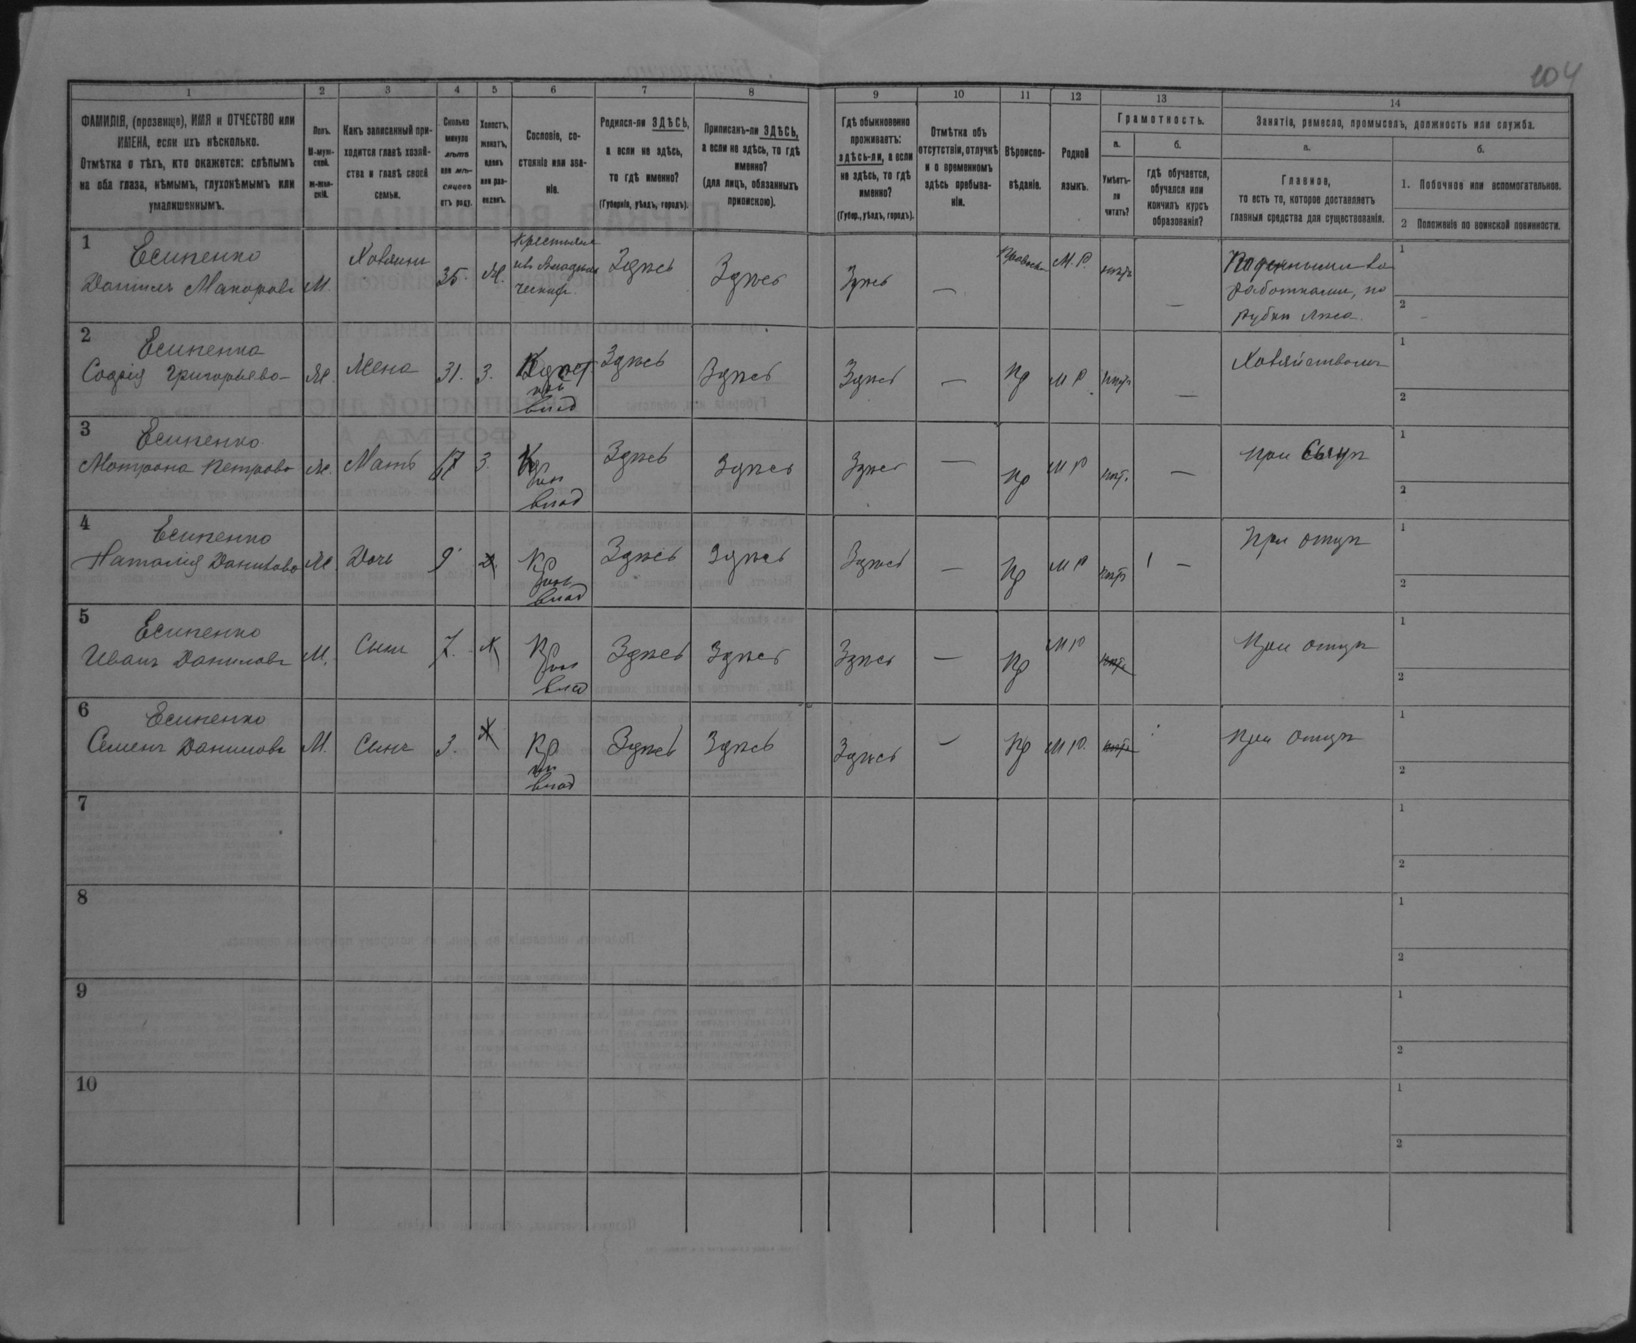 104
1 2 3 4 5 6 7 8 9 10 11 12 13 14
ФАМИЛІЯ, (прозвище), ИМЯ и ОТЧЕСТВО или
ИМЕНА, если ихъ нѣсколько.
Отмѣтка о тѣхъ, кто окажется: слѣпымъ
на оба глаза, нѣмымъ, глухонѣмымъ или
умалишеннымъ.
Полъ.
М-муж-
ской.
ж-жен-
скій.
Какъ записанный при-
ходится главѣ хозяй-
ства и главѣ своей
семьи.
Сколько
минуло
лѣтъ
или мѣ-
сяцевъ
отъ роду.
Холостъ,
женатъ,
вдовъ
или раз-
веденъ.
Сословіе, со-
стояніе или зва-
ніе.
Родился-ли ЗДѢСЬ,
а если не здѣсь,
то гдѣ именно?
(Губернія, уѣздъ, городъ).
Приписанъ-ли ЗДѢСЬ,
а если не здѣсь, то гдѣ
именно?
(для лицъ, обязанныхъ
припискою).
Гдѣ обыкновенно
проживаетъ:
здѣсь-ли, а если
не здѣсь, то гдѣ
именно?
(Губер., уѣздъ, городъ).
Отмѣтка объ
отсутствіи, отлучкѣ
и о временномъ
здѣсь пребыва-
ніи.
Вѣроиспо-
вѣданіе.
Родной
языкъ.
Грамотность.
а.
Умѣетъ-
ли
читать?
б.
гдѣ обучается,
обучался или
кончилъ курсъ
образованія?
Занятія, ремесло, промыселъ, должность или служба.
а.
Главное,
то есть то, которое доставляетъ
главныя средства для существованія.
б.
1. Побочное или вспомогательное.
2 Положеніе по воинской повинности.
1 Есипенко
Данилъ Макоровъ М. Хозяинъ 35 Ж. Здѣсь Здѣсь Здѣсь — М.Р. нѣтъ —
работами, по
рубки лѣса
1
2
2 Есипенко
Софія Григорьева Ж. Жена 31. З. Здѣсь Здѣсь Здѣсь — Пр М Р нѣтъ —
влад
1
2
3 Есипенко
Матрона Петрова Ж. Мать З. Кр Здѣсь Здѣсь Здѣсь — Пр М Р нѣт. — При Сынѣ
влад
1
2
4 Есипенко
Наталія Данилова Ж Дочь 9 Кр Здѣсь Здѣсь Здѣсь — Пр М Р нѣтъ — При отцѣ
влад
1
2
5 Есипенко
Иванъ Даниловъ М. Сынъ 7. Кр Здѣсь Здѣсь Здѣсь — Пр М Р нѣтъ При отцѣ
влад
1
2
6 Есипенко
Семенъ Даниловъ М. Сынъ 3. Кр Здѣсь Здѣсь Здѣсь — Пр М Р. нѣтъ При отцѣ
влад
1
2
7
1
2
8
1
2
9
1
2
10
1
2